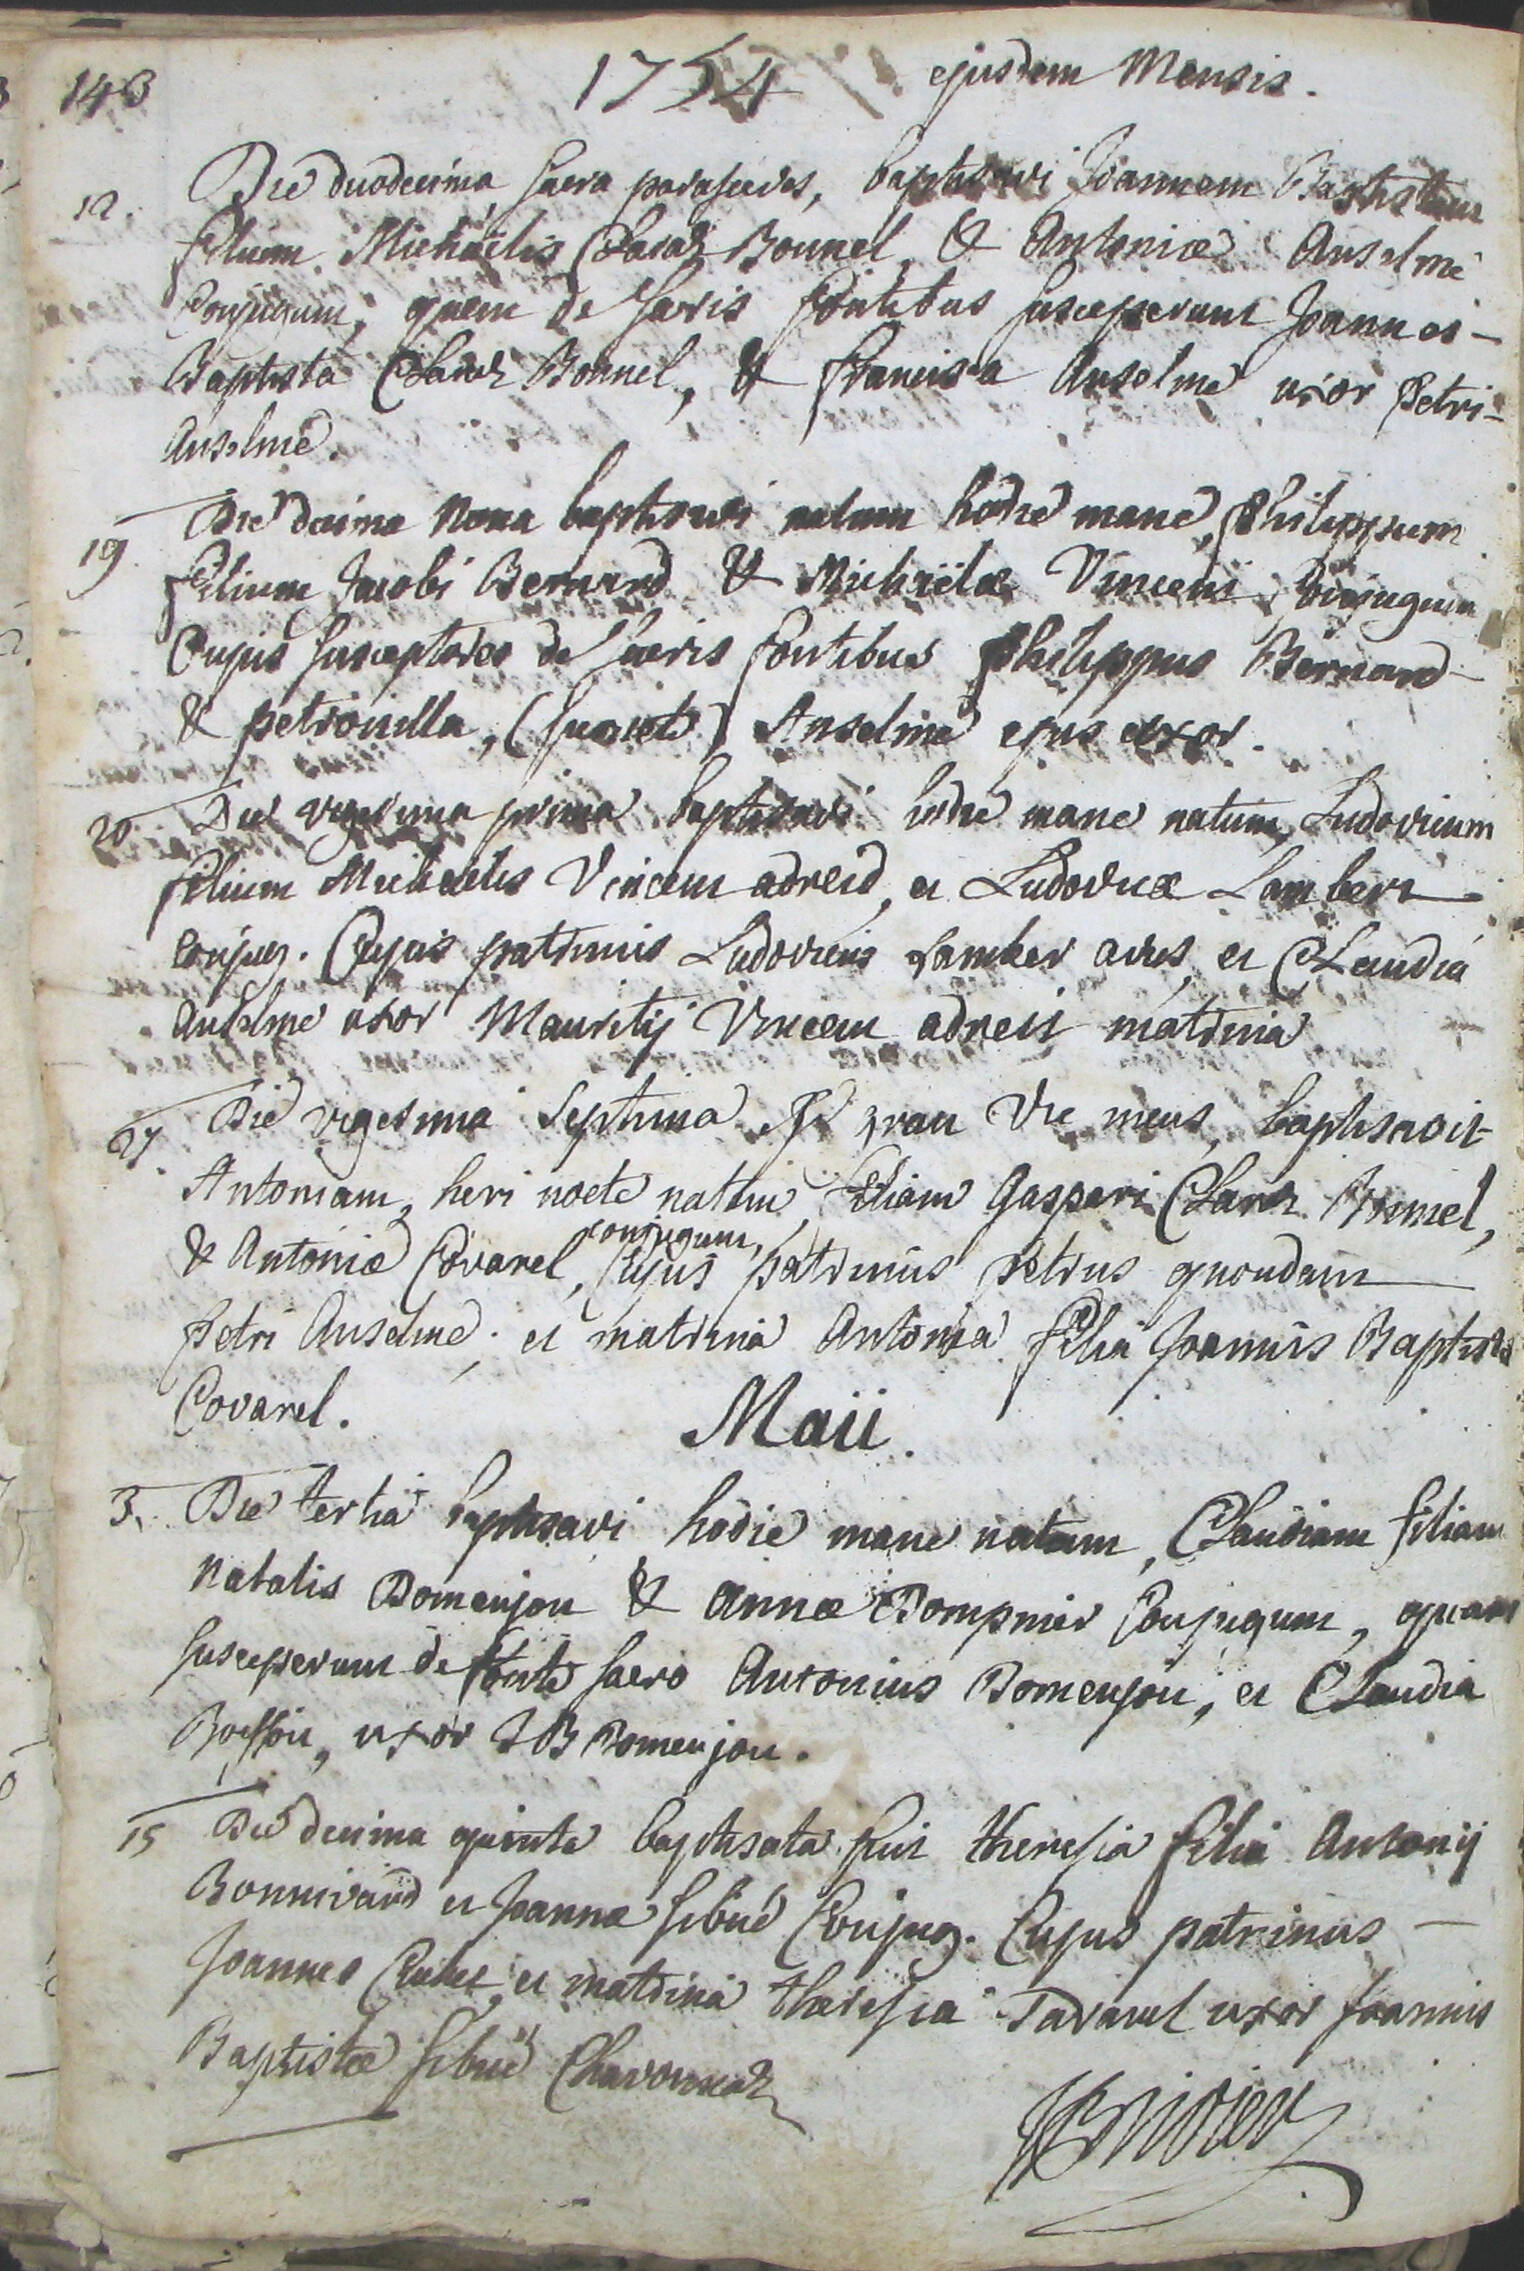 143 1754 ejusdem Mensis.
12. Die duodecima, sacra parasceves, baptisavi Joannem Baptistam
filium Michaëlis Claraz Bonnel, & Antoniæ Anselme
Conjugum, quem de sacris fontibus susceperunt Joannes-
Baptista Claraz Bonnel, & francisca Anselme uxor Petri-
Anselme.
19. Die decima Nona baptisavi natum hodie mane, Philippum
filium Jacobi Bernard & Michaëlæ Vincent Conjugum
Cujus susceptores de sacris fontibus philippus Bernard
& petronilla, Anselme ejus uxor.
20. Die vigesima prima baptisavi hodie mane natum, Ludovicum
filium Michaelis Vincent adreid, et Ludovicæ Lambert
conjug. Cujus patrinus Ludovicus Lamber avus, et Claudia
Anselme uxor Mauritij Vincent adreit matrina
27. Die vigesima Septima Rd Vic meus, baptisavit
Antoniam, heri nocte natam, filiam Gaspari Claraz Bonnel,
& Antoniæ Covarel, conjugum, Cujus patrinus Petrus quondam
Petri Anselme. et matrina Antonia filia Joannis Baptistæ
Covarel.
Maii.
3. Die tertia baptisavi hodie mane natam, Claudiam filiam
Natalis Domenjon & Annæ Dompnier Conjugum, quam
susceperunt de fonte sacro Antonius Domenjon, et Claudia
Boisson, uxor J B Domenjon.
15 Die decima quinta baptisata fuit theresia filia Antonij
Bonnivard et Joannæ sibué Conjug. Cujus patrinus
Joannes et matrina theresia Tavarel uxor Joannis
Baptistæ sibué Chavonnaz